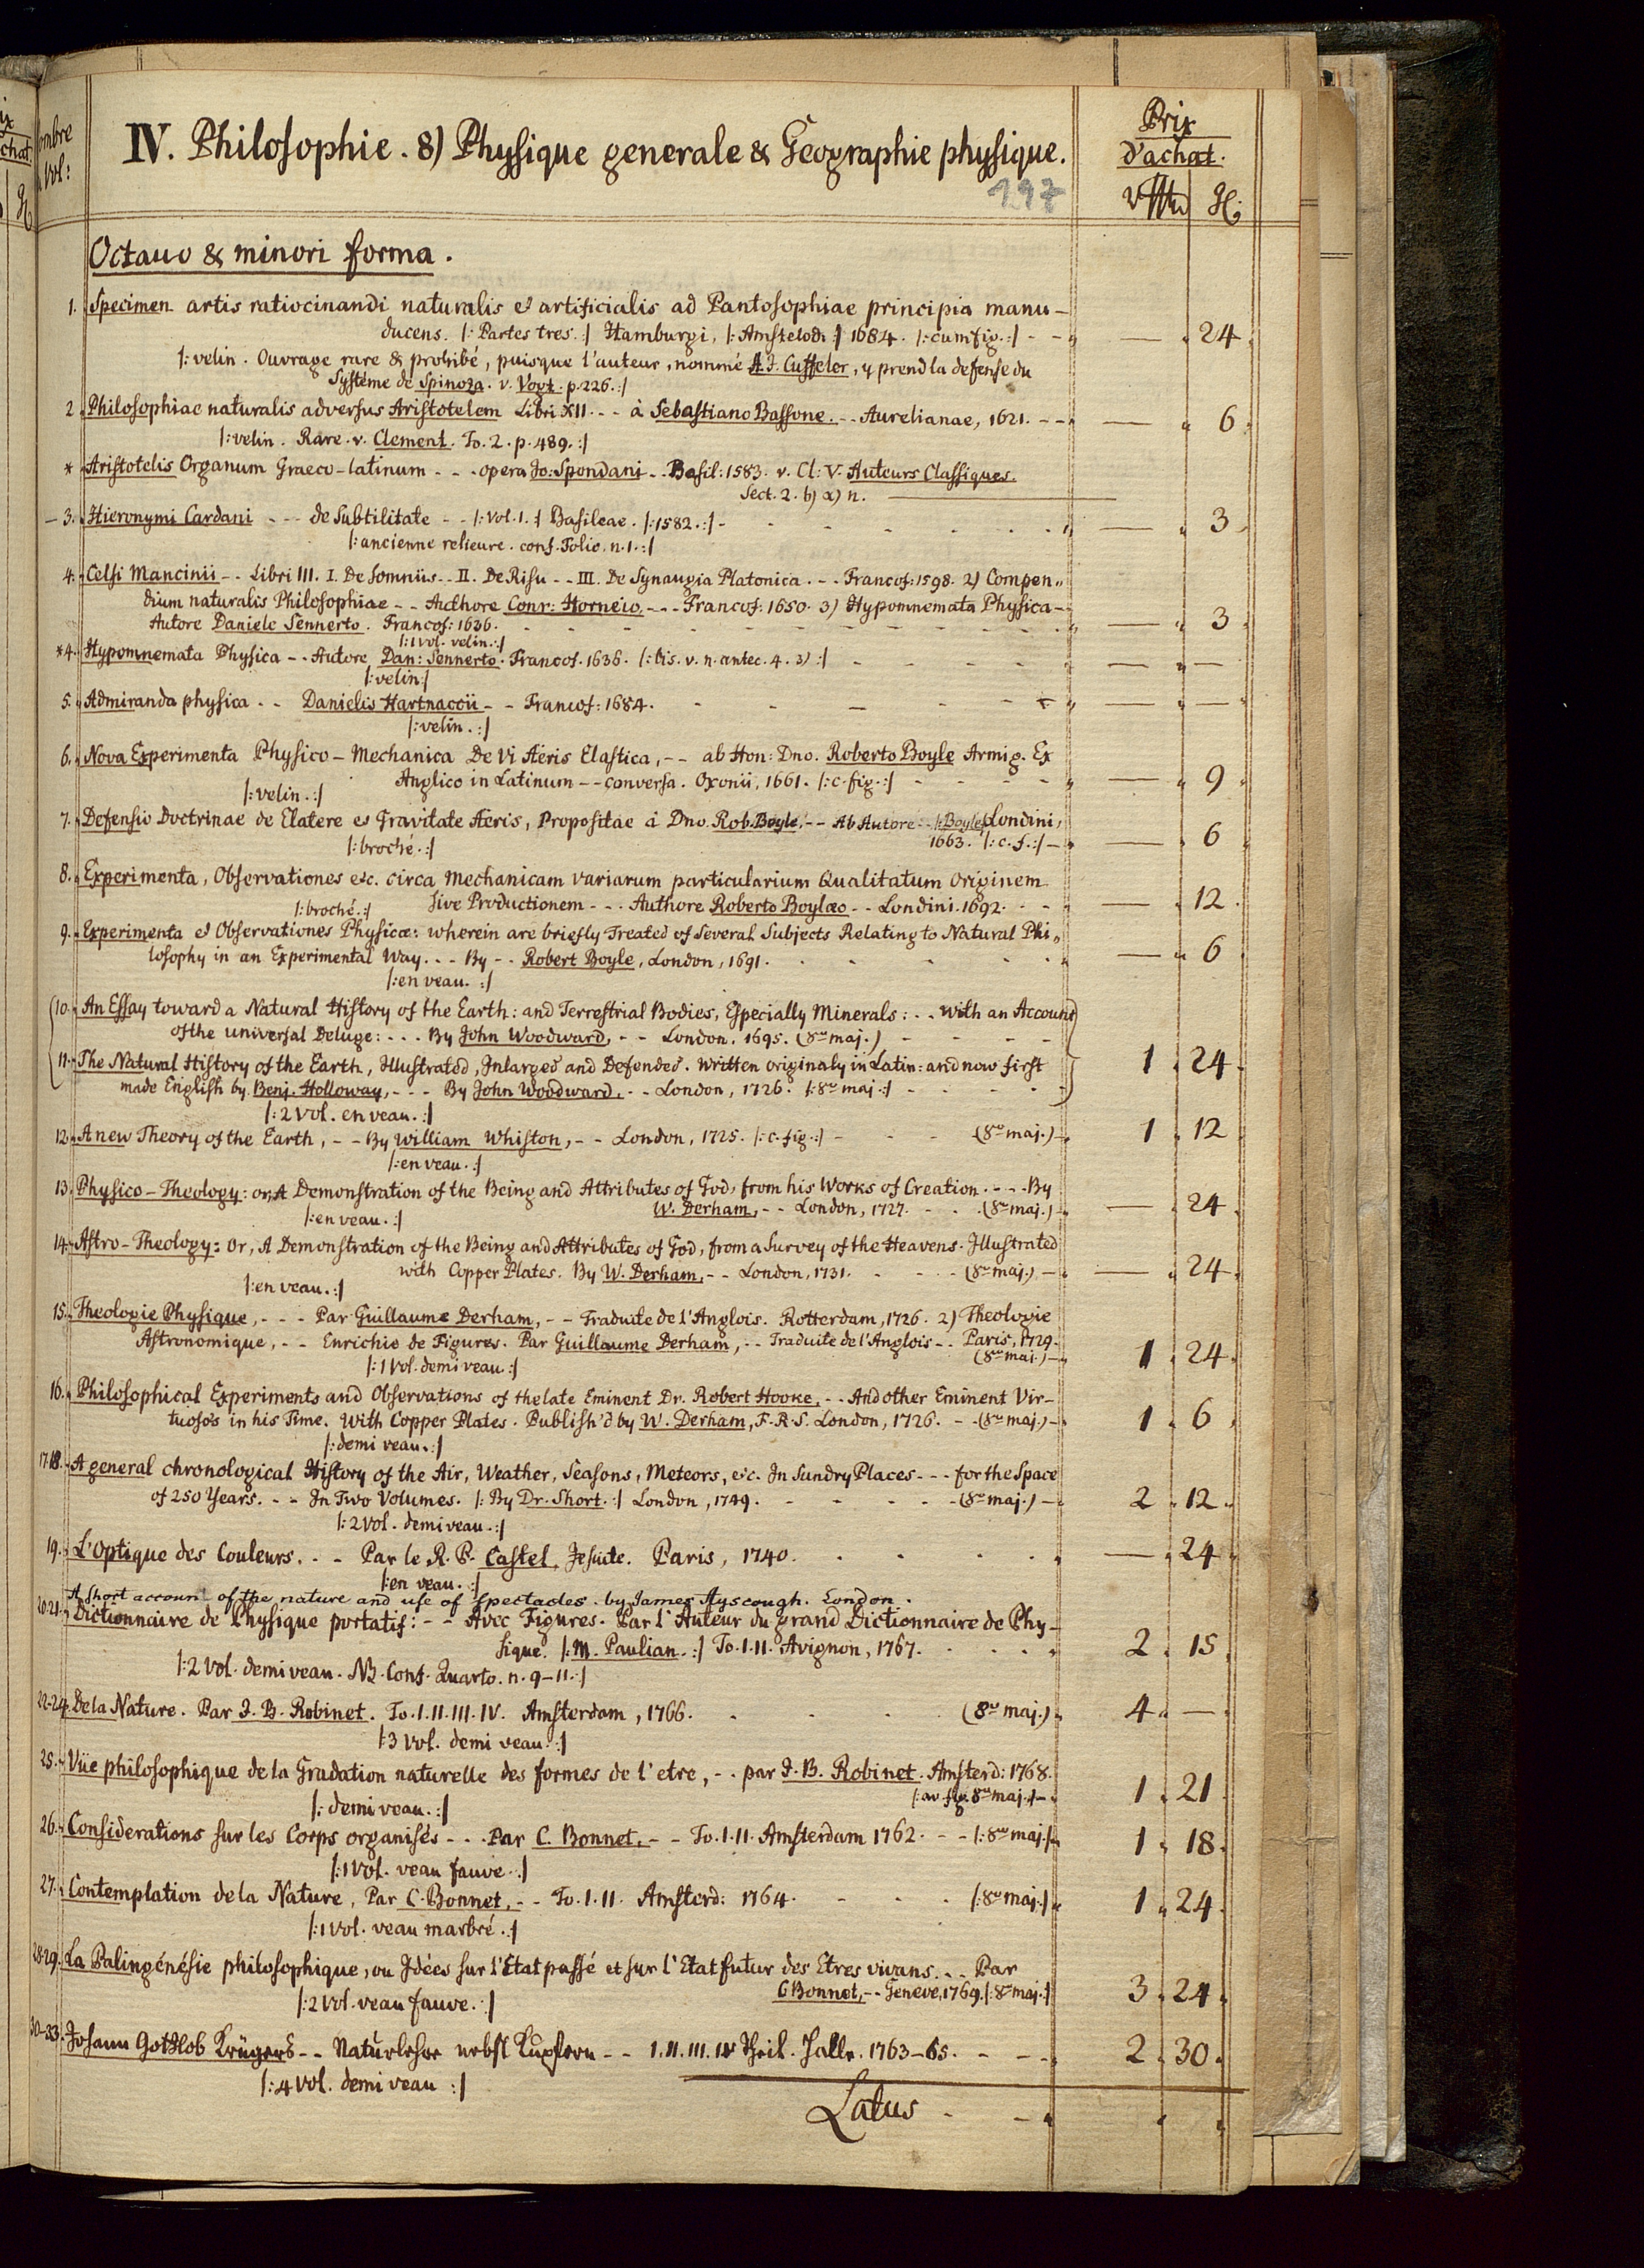 IV. Philosophie. 8) Physique generale & Geographie physique.
Prix
d'achat.
197
Octavo & minori forma.
1. Specimen artis ratiocinandi naturalis et artificialis ad Pantosophiae principia manu-
ducens. |: Partes tres. :| Hamburgi, |: Amstelodi :| 1684. |: cum fig. :| - - — 24.
|: velin. Ouvrage rare & prohibé, puisque l'auteur, nommé A. J. Cuffeler, y prend la defense du
Systéme de Spinoza. v. Vogt. p. 226. :|
2. Philosophiae naturalis adversus Aristotelem Libri XII. - - à Sebastiano Bassone. - - Aurelianae, 1621. - - — 6.
|: velin. Rare. v. Clement. To. 2. p. 489. :|
* Aristotelis Organum Graeco-latinum - - - opera Jo: Spondani - - Basil: 1583. v. Cl: V. Auteurs Classiques.
Sect. 2. b) α) n.
3. Hieronymi Cardani - - - de Subtilitate - - |: Vol. 1. :| Basileae. |: 1582. :| - — 3.
|: ancienne relieure. conf. Folio. n. 1. :|
4. Celsi Mancinii - - Libri III. I. De Somniis - - II. De Risu - - III. De Synaugia Platonica. - - Francof: 1598. 2) Compen„
dium naturalis Philosophiae - - Authore Conr: Horneio, - - - Francof: 1650. 3) Hypomnemata Physica -
Autore Daniele Sennerto. Francof: 1636. — 3.
|: 1 vol. velin. :|
*4. Hypomnemata Physica - - Autore Dan: Sennerto. Francof. 1636. |: bis. v. n. antec. 4. 3) :| — —
|: velin :|
5. Admiranda physica - - Danielis Hartnaccii - - Francof: 1684. — —
|: velin. :|
6. Nova Experimenta Physico-Mechanica De Vi Aëris Elastica, - - ab Hon: Dno. Roberto Boyle Armig. Ex
Anglico in Latinum - - conversa. Oxonii, 1661. |: c. fig. :| — 9.
|: velin. :|
7. Defensio Doctrinae de Elatere et Gravitate Aeris, Propositae à Dno. Rob. Boyle, - - Ab Autore - |: Boyle :| Londini,
1663. |: c. f. :| — 6
|: broché. :|
8. Experimenta, Observationes etc. circa Mechanicam variarum particularium Qualitatum Originem
sive Productionem - - - Authore Roberto Boylæo - - Londini. 1692. — 12.
|: broché. :|
9. Experimenta et Observationes Physicæ: wherein are briefly Treated of Several Subjects Relating to Natural Phi„
losophy in an Experimental Way. - - By - - Robert Boyle, London, 1691. — 6
|: en veau. :|
10. An Essay toward a Natural History of the Earth: and Terrestrial Bodies, Especially Minerals: - - with an Account
of the universal Deluge: - - - By John Woodward, - - London. 1695. (8vo maj.)
11. The Natural History of the Earth, Illustrated, Inlarged and Defended. Written originaly in Latin: and now first 1 24.
made English by Benj. Holloway, - - - By John Woodward, - - London, 1726. |: 8vo maj :|
|: 2 Vol. en veau. :|
12. A new Theory of the Earth, - - By William Whiston, - - London, 1725. |: c. fig. :| - (8vo maj.) 1 12
|: en veau. :|
13. Physico-Theology: or, A Demonstration of the Being and Attributes of God, from his Works of Creation. - - - By
W. Derham, - - London, 1727. (8vo maj.) — 24.
|: en veau. :|
14. Astro-Theology: Or, A Demonstration of the Being and Attributes of God, from a Survey of the Heavens. Illustrated
with Copper Plates. By W. Derham, - - London, 1731. (8vo maj.) — 24.
|: en veau. :|
15. Theologie Physique, - - - Par Guillaume Derham, - - Traduite de l'Anglois. Rotterdam, 1726. 2) Theologie
Astronomique, - - Enrichie de Figures. Par Guillaume Derham, - - Traduite de l'Anglois - - Paris, 1729.
(8vo maj.) 1 24.
|: 1 Vol. demi veau :|
16. Philosophical Experiments and Observations of the late Eminent Dr. Robert Hooke, - - And other Eminent Vir-
tuoso's in his Time. With Copper Plates. Publish'd by W. Derham, F. R. S. London, 1726. - - (8vo maj.) 1 6
|: demi veau. :|
17.18. A general chronological History of the Air, Weather, Seasons, Meteors, etc. In Sundry Places - - - for the Space
of 250 Years. - - In Two Volumes. |: By Dr. Short. :| London, 1749. (8vo maj.) 2 12.
|: 2 Vol. demi veau. :|
19. L'Optique des Couleurs. - - Par le R. P. Castel, Jesuite. Paris, 1740. — 24.
|: en veau. :|
A short account of the nature and use of Spectacles. by James Ayscough. London.
20-21. Dictionnaire de Physique portatif: - - Avec Figures. Par l'Auteur du grand Dictionnaire de Phy-
sique. |: M. Paulian. :| To. I. II. Avignon, 1767. 2 15
|: 2 Vol. demi veau. NB. Conf. Quarto. n. 9-11. :|
22-24. De la Nature. Par J. B. Robinet. To. I. II. III. IV. Amsterdam, 1766. (8vo maj.) 4 —
|: 3 Vol. demi veau. :|
25. Vüe philosophique de la Gradation naturelle des formes de l'etre, - - par J. B. Robinet. Amsterd: 1768.
|: av. fig. 8vo maj. :| 1 21
|: demi veau. :|
26. Considerations sur les Corps organisés - - - Par C. Bonnet, - - To. I. II. Amsterdam 1762. - - |: 8vo maj. :| 1 18.
|: 1 Vol. veau fauve. :|
27. Contemplation de la Nature, Par C. Bonnet, - - To. I. II. Amsterd: 1764. |: 8vo maj. :| 1 24.
|: 1 Vol. veau marbré. :|
28-29. La Palingénésie philosophique, ou Idées sur l'Etat passé et sur l'Etat futur des Etres vivans. - - Par
C Bonnet, - - Geneve, 1769. |: 8vo maj. :| 3 24.
|: 2 Vol. veau fauve. :|
30-33. Johann Gottlob Krügers - - Naturlehre nebst Kupfern - - I. II. III. IV Theil. Halle. 1763-65. 2 30.
|: 4 Vol. demi veau :|
Latus